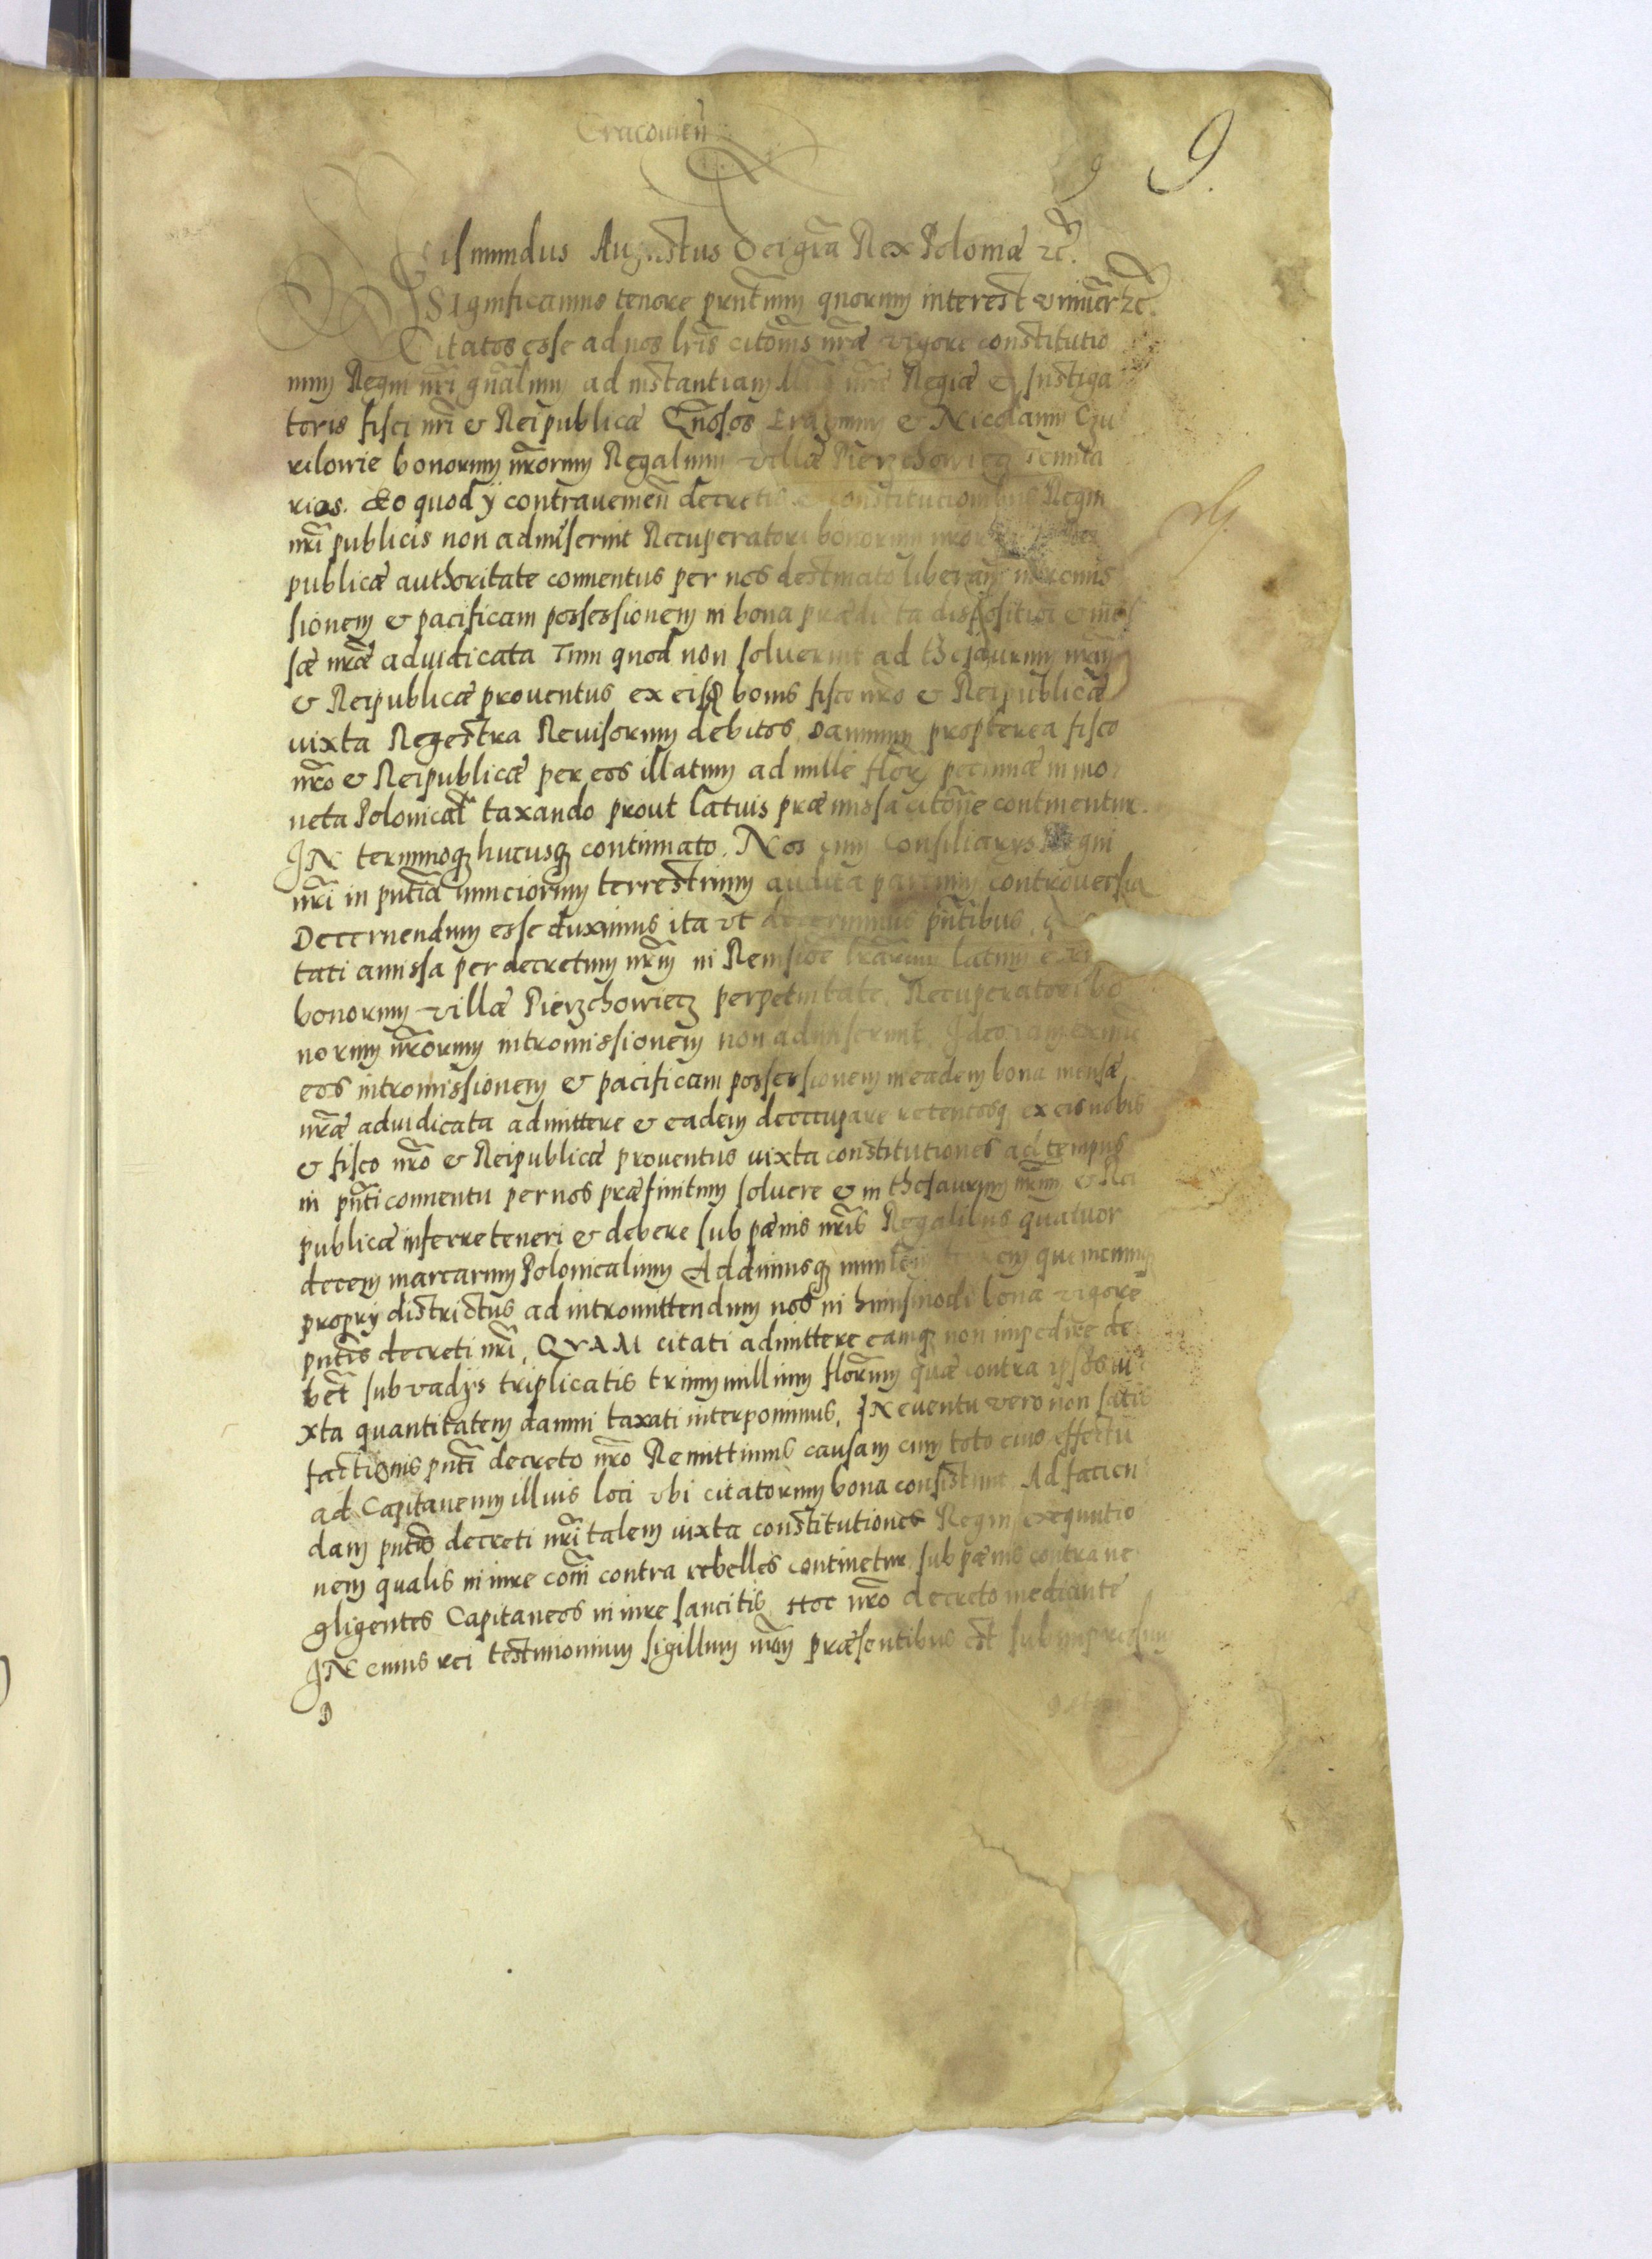 Cracouień
9 9.
Sigismundus Augustus Dei grã Rex Poloniæ ꝛc̃.
Significamus tenore prñtium quorum interest vniuer̃ ꝛc̃.
Citatos esse ad nos lris̃ citõnis nr̃æ vigore constitutio
num Regni nr̃i gnãlium ad instantiam nr̃æ Regiæ & Instiga
toris fisci nr̃i & Reipublicæ Gñosos Erazmum & Nicolaum Czu
rilowie bonorum nr̃orum Regalium villæ Pierzchowiecz Tenuta
rios. Eo quod ÿ contraueniẽn decretis & constitutionibus Regni
nr̃i publicis non admiserint Recuperatori bonorum
publicæ authoritate conuentus per nos destinato liberam intromis
sionem & pacificam possessionem in bona prædicta dispositioi & mẽ
sæ nr̃æ adiudicata Tum quod non soluerint ad thesaurum nr̃um
& Reipublicæ prouentus ex eisd̃ bonis fisco nr̃o & Reipublicæ
iuxta Regestra Reuisorum debitos, Damnum propterea fisco
nr̃o & Reipublicæ per eos illatum ad mille flor̃ pecuniæ in mo
neta Polonical̃ taxando prout latius præmissa citõne continentur.
IN terminoq; hucusq; continuato. Nos cum Consiliarÿs Regni
nr̃i in pñtia nunciorum terrestrium audita partium controuersia
Decernendum esse duximus ita vt decernimus pñtibus,
tati amissa per decretum nr̃um in Reuisiõe lrãrum latum
bonorum villæ Pierzchowiecz perpetuitate. Recuperatori bo
norum nr̃orum intromissionem non admiserint. Ideo iam
eos intromissionem & pacificam possessionem in eadem bona mensæ
nr̃æ adiudicata admittere & eadem deoccupare retentosq; ex eis nobis
& fisco nr̃o & Reipublicæ prouentus iuxta constitutiones ad tempus
in pñti conuentu per nos præfinitum soluere & in thesaurum nr̃um & Rei
publicæ inferre teneri & debere sub pœnis nr̃is Regalibus quatuor
decem marcarum Polonicalium Addimusq; quemcunq;
proprÿ districtus ad intromittendum nos in huiusmodi bona vigore
pñtis decreti nr̃i, QVAM citati admittere eamq; non impedire de
bent̃ sub vadÿs triplicatis trium millium florenũm quæ contra ipsos iu
xta quantitatem damni taxati interponimus. IN euentu vero non satis
factionis pñti decreto nr̃o Remittimus causam cum toto eius effectu
ad Capitaneum illius loci vbi citatorum bona consistunt Ad facien
dam pñtis decreti nr̃i talem iuxta constitutiones Regni exequutio
nem qualis in iure com̃i contra rebelles continetur sub pœnis contra ne
gligentes Capitaneos in iure sancitis Hoc nr̃o decreto mediante
IN cuius rei testimonium sigillum nr̃um præsentibus est subimpressum
D